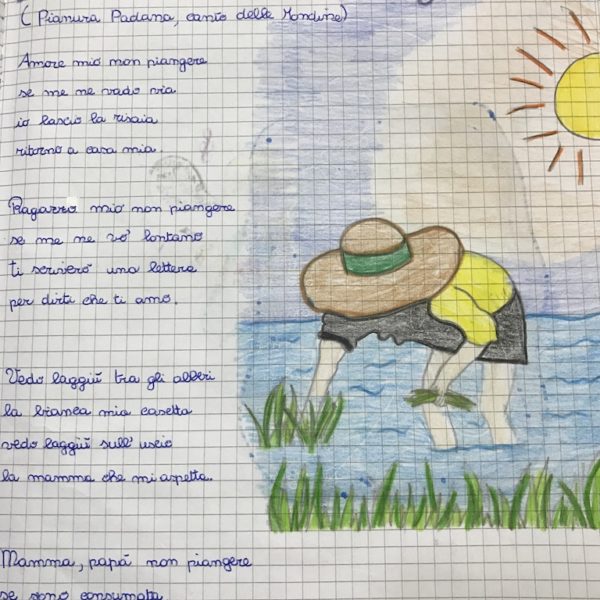 (Pianura Padana, canto delle Mondine)
Amore mio non piangere
se me ne vado via
io lascio la risaia
ritorno a casa mia.
Ragazzo mio non piangere
se me ne vò lontano
ti scriverò una lettera
per dirti che ti amo.
Vedo laggiù tra gli alberi
la bianca mia casetta
vedo laggiù sull' uscio
la mamma che mi aspetta.
Mamma, papà non piangere
se sono consumata